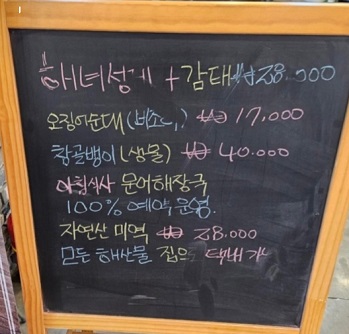 해녀성게 + 감태 ₩28.000
오징어순대 ₩ 17,000
참골뱅이(생물) ₩ 40.000
아침식사 문어해장국
100% 예약운영.
자연산 미역 ₩ 28.000
모든 해산물 집으로 택배 가